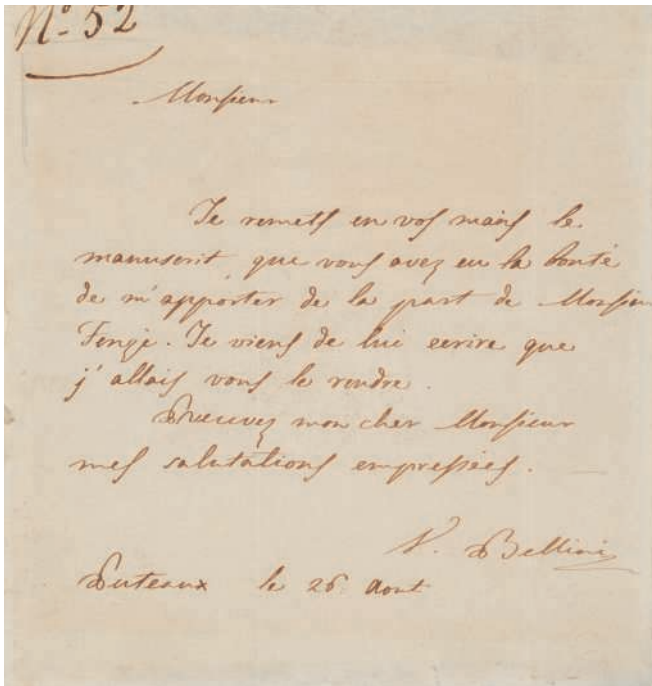 N.º 52
Monsieur
Je remets en vos mains le
manuscrit, que vous avez eu la bonté
de m'apporter de la part de Monsieur
Je viens de lui ecrire que
j'allais vous le rendre.
Recevez mon cher Monsieur
mes salutations empressées.
V. Bellini
Puteaux le 26 Aout